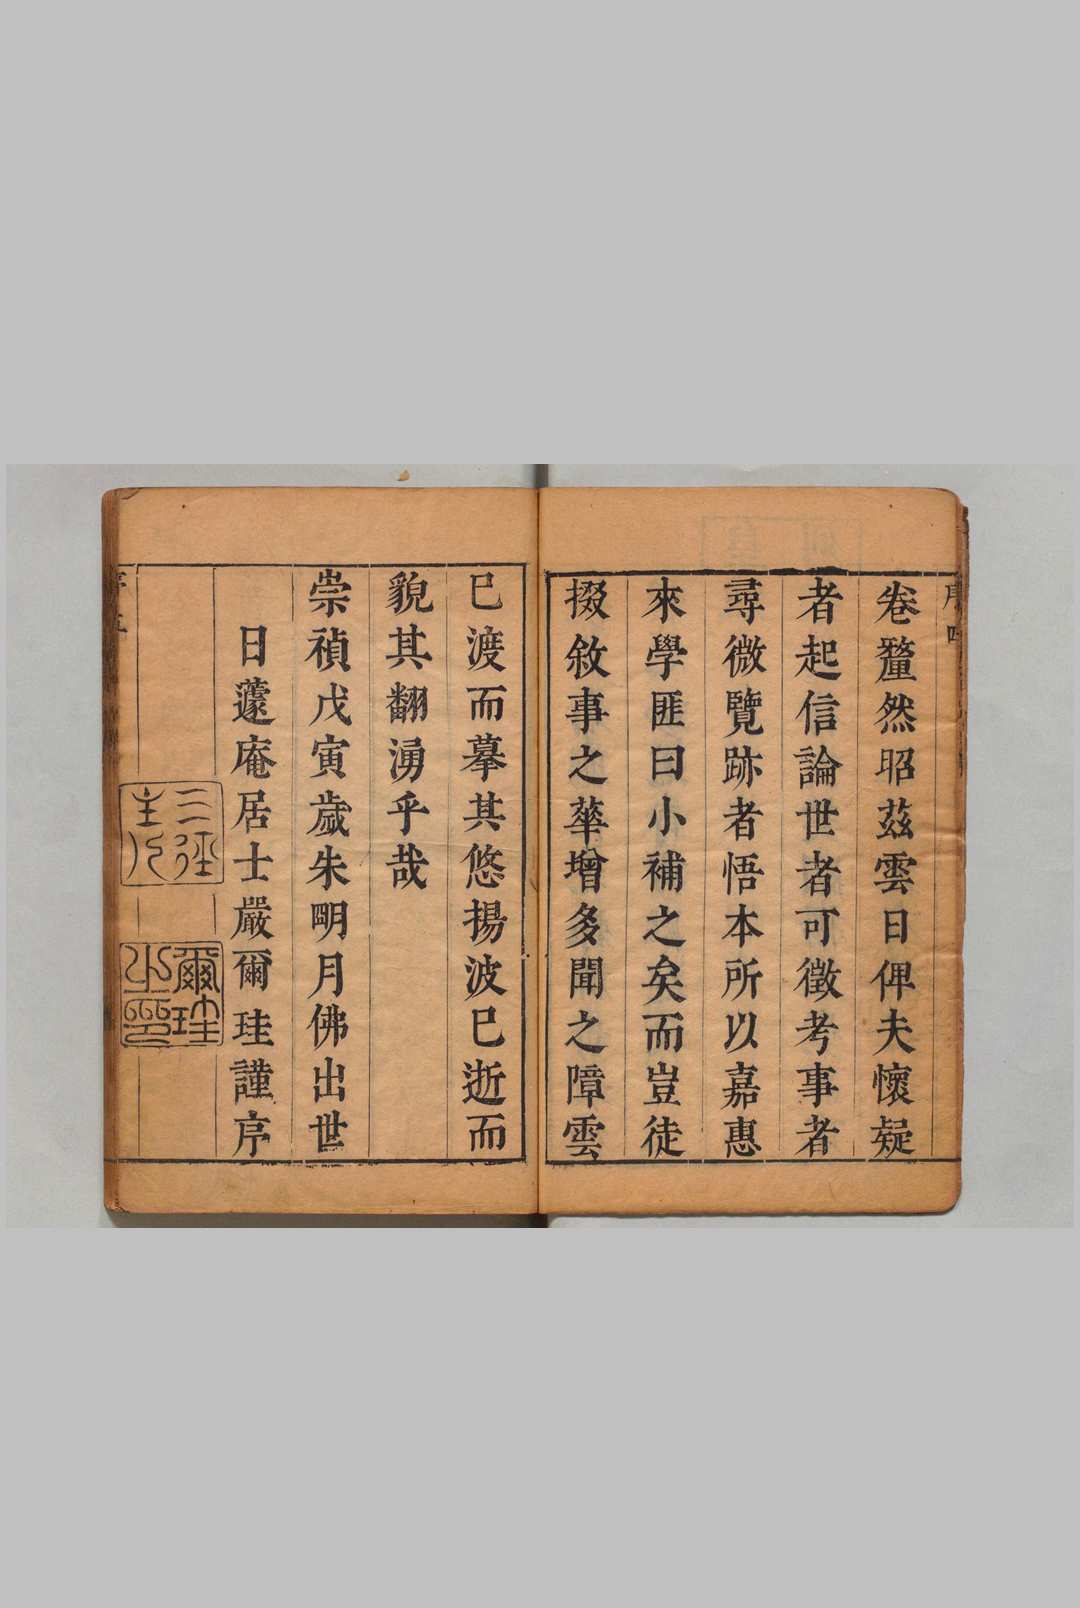 卷釐然昭茲雲日俾夫懷疑
者起信論世者可徵考事者
尋微覽跡者悟本所以嘉惠
來學匪曰小補之矣而豈徒
掇敘事之華增多聞之障雲
巳渡而摹其悠揚波巳逝而
貌其翻湧乎哉
崇禎戊寅歲朱明月佛出世
日蘧庵居士嚴爾珪謹序
爾珪之印
序四